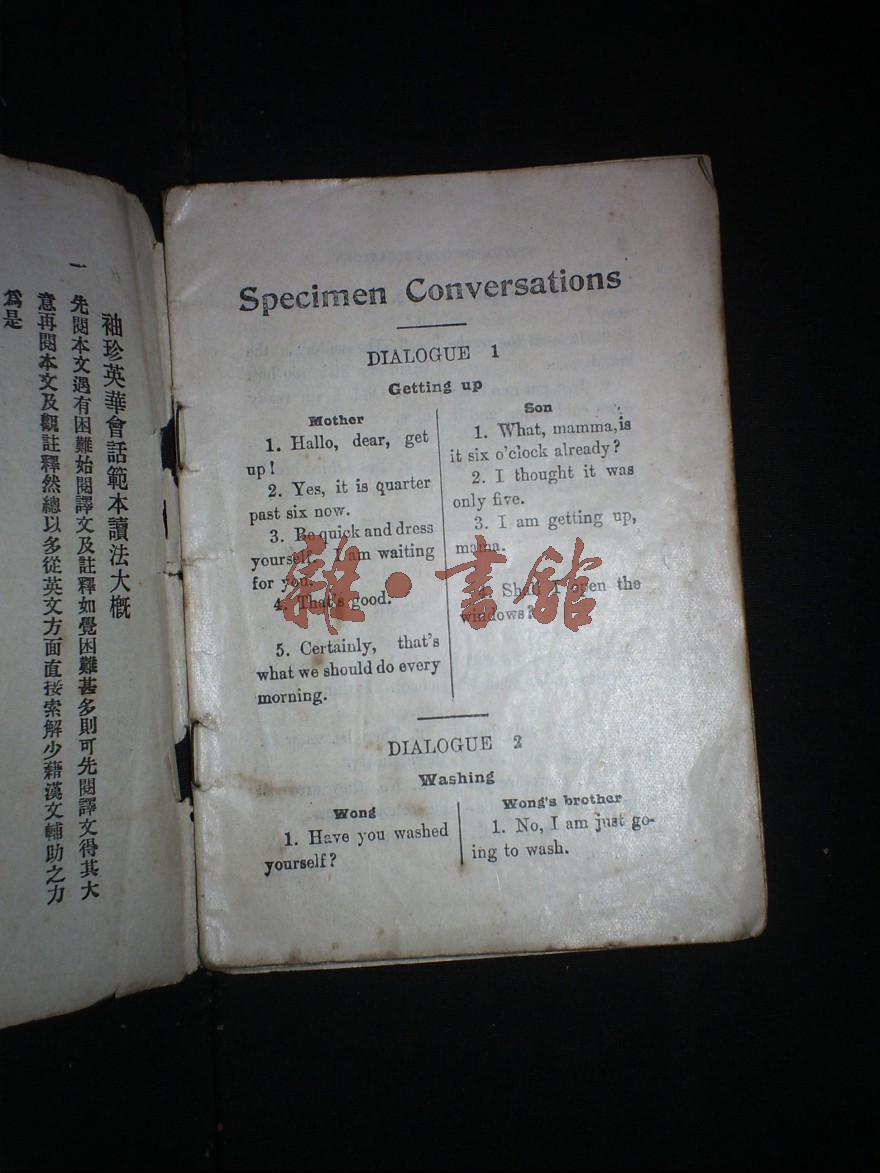 袖珍英華會話範本讀法大概
一 先閱本文遇有困難始閱譯文及註釋如覺困難甚多則可先閱譯文得其大
意再閱本文及觀註釋然總以多從英文方面直接索解少藉漢文輔助之力
爲是
Specimen Conversations
DIALOGUE 1
Getting up
Mother
1. Hallo, dear, get
up!
2. Yes, it is quarter
past six now.
3. Be quick and dress
yourself. I am waiting
for you.
4. That's good.
5. Certainly, that's
what we should do every
morning.
Son
1. What, mamma, is
it six o'clock already?
2. I thought it was
only five.
3. I am getting up,
mama.
4. Shall I open the
windows?
DIALOGUE 2
Washing
Wong
1. Have you washed
yourself?
Wong's brother
1. No, I am just go-
ing to wash.
雜·書館